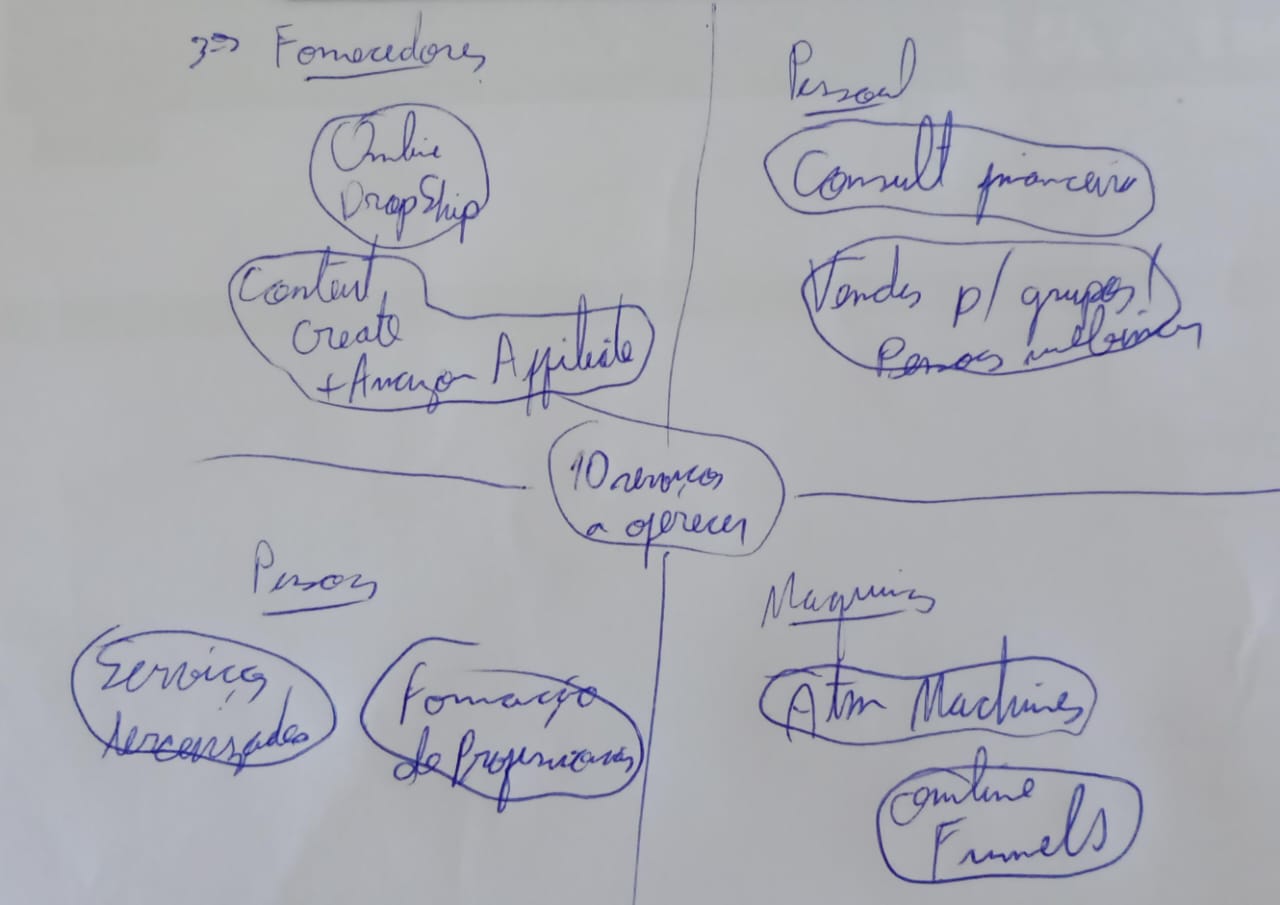 3=> Fornecedores
Online
DropShip
Content
Create
+ Amazon Affiliate
Pessoal
Consult financeira
Vendas p/ grupos/
Pessoas
10 serviços
a oferecer
Pessoas
Serviços
tercerizados
Formação
de Profissionais
Maquinas
Atm Machines
online
Funnels